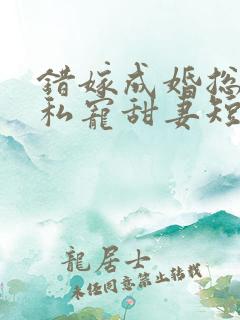 错嫁成婚总
私宠甜妻短
龍居士
未经同意禁止转载